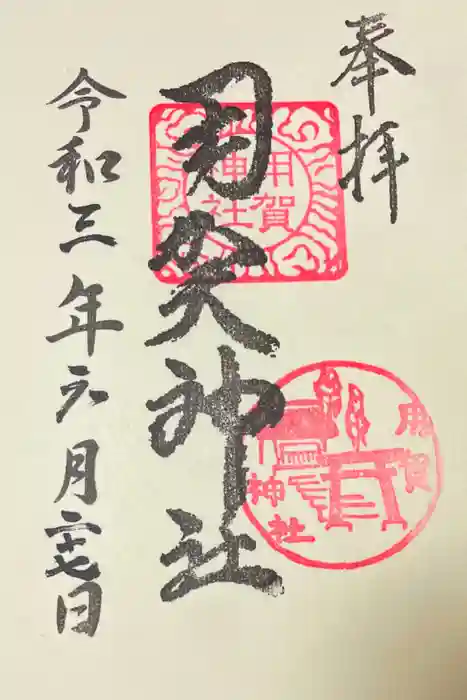 奉拝
用賀神社
用賀
神社
用賀
神社
令和三年六月二十七日